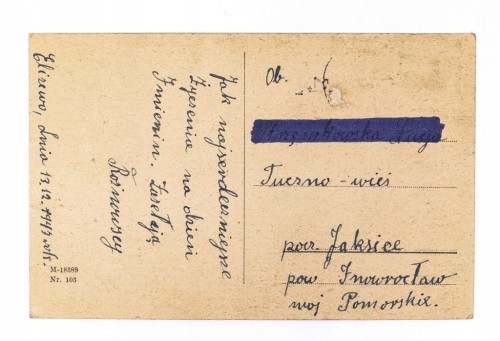 Elizewo, dnia 13.12.1947 r.
Jak najserdeczniejsze
Życzenia na dzień
Imienin. Zasyłają
Rosnowscy
M-18389
Nr. 103
Ob.
Łucja
Tuczno-wieś
pocz. Jaksice
pow Inowrocław
woj Pomorskie.